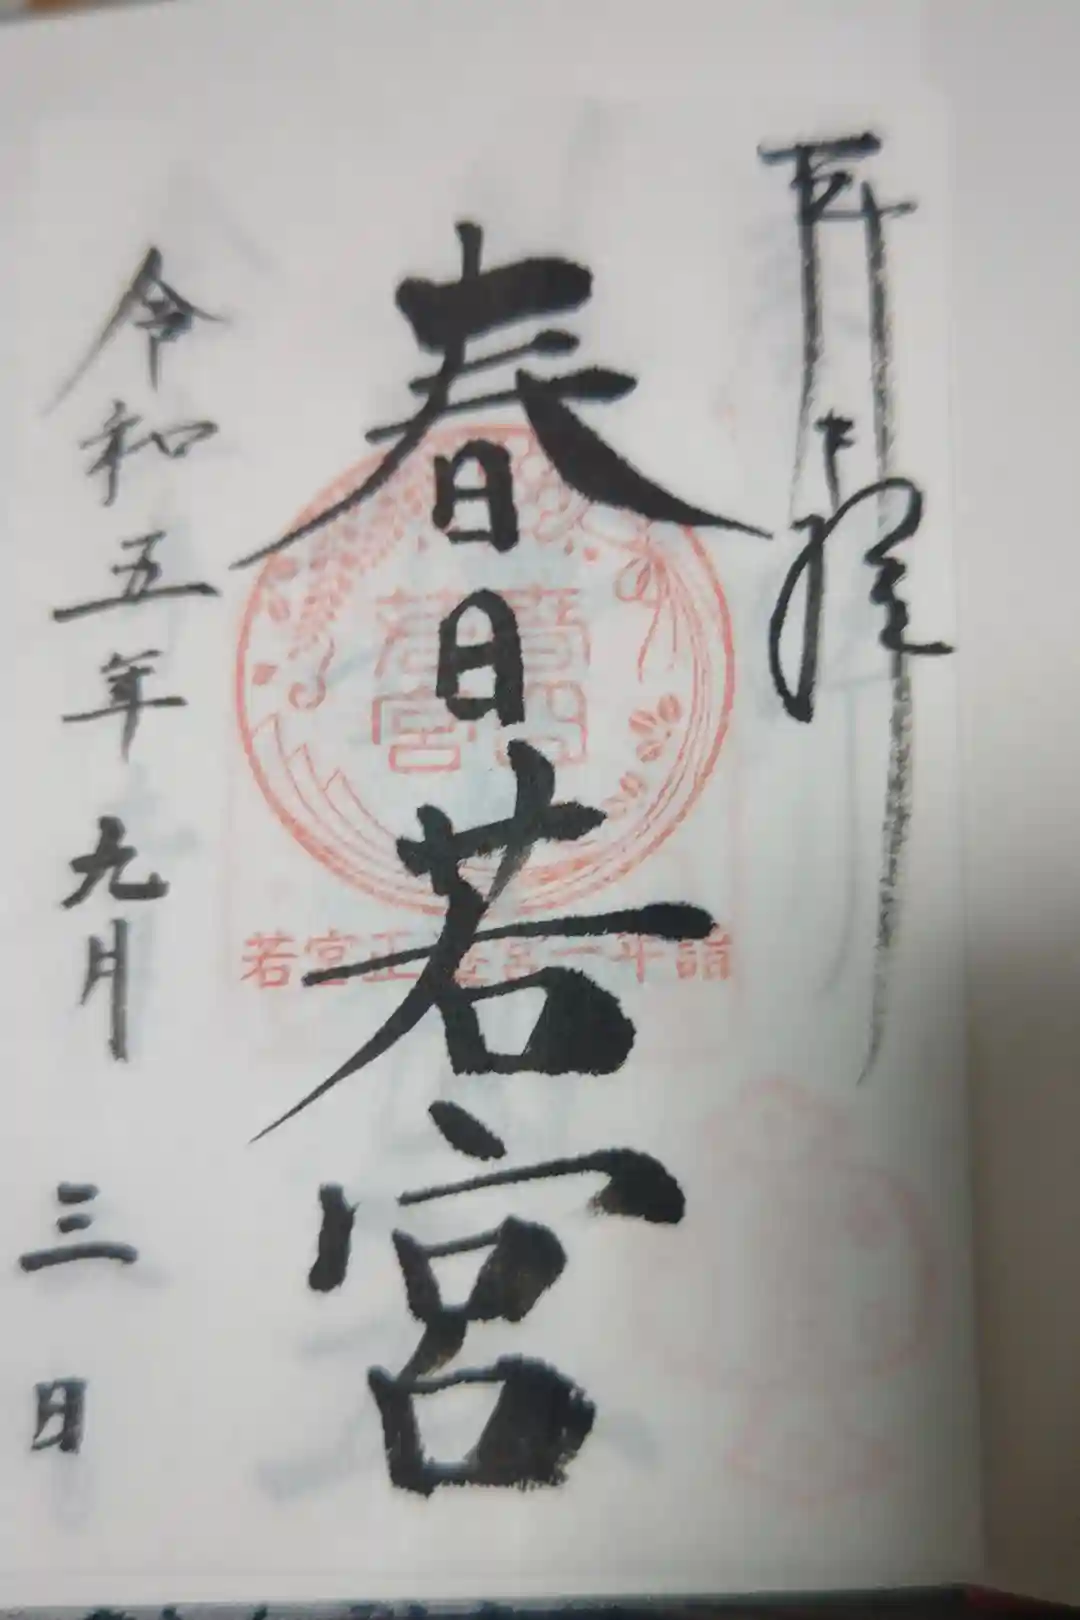 奉拝
春日若宮
春日
若宮
若宮正遷宮一年詣
令和五年九月三日